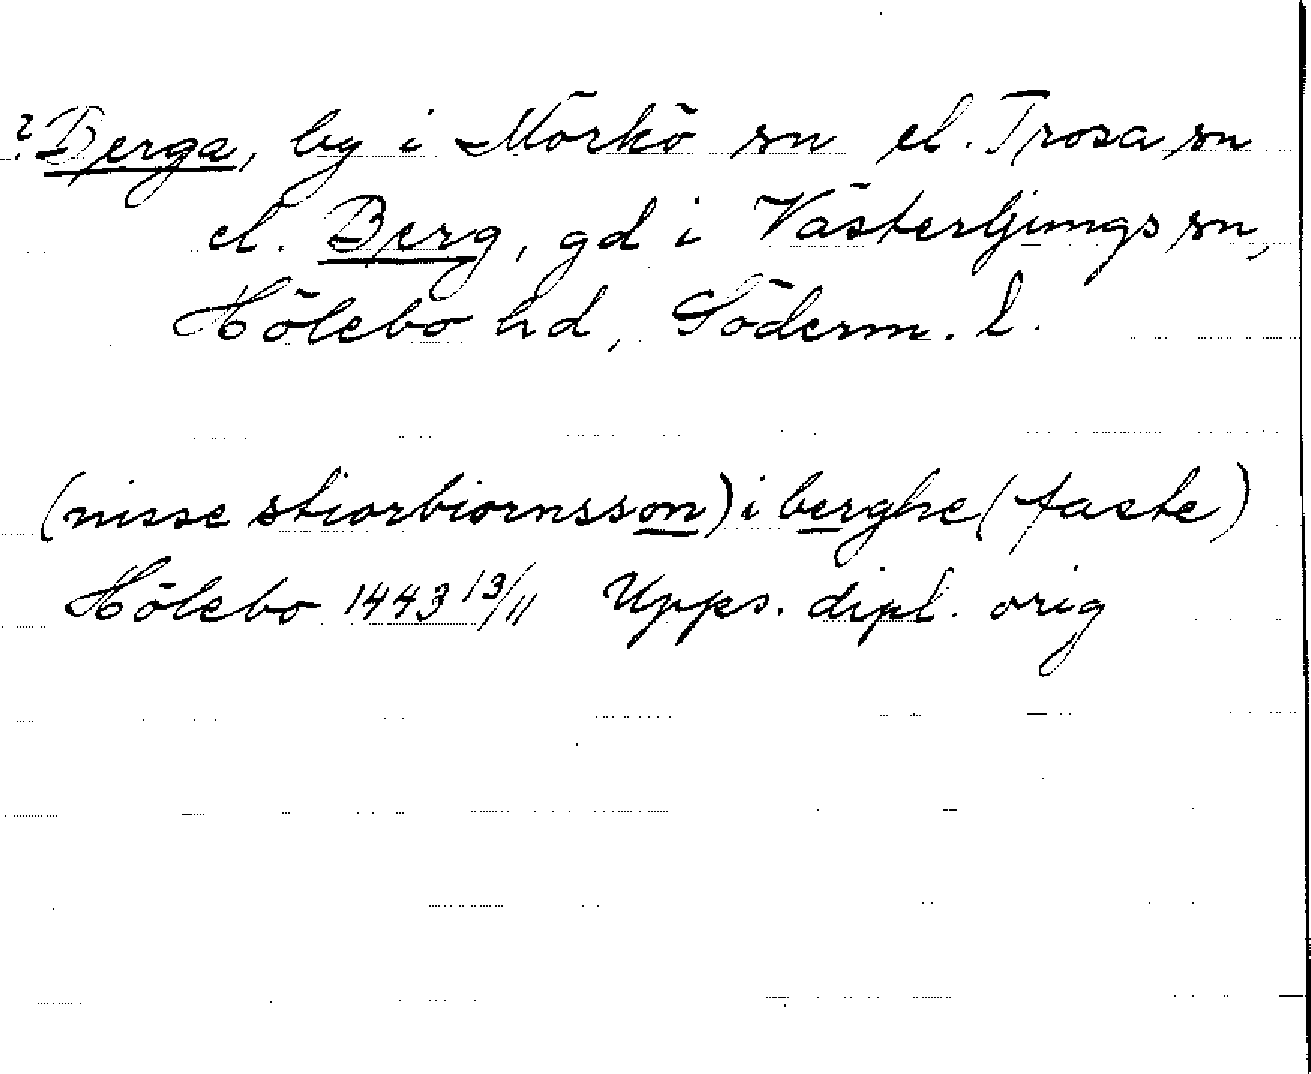 ? Berga, by i Mörkö sn el. Trosa sn
el. Berg, gd i Västerljungs sn,
Hölebo hd, Söderm. l.
(nisse stiorbiornsson) i berghe (faste)
Hölebo 1443 13/11 Upps. dipl. orig